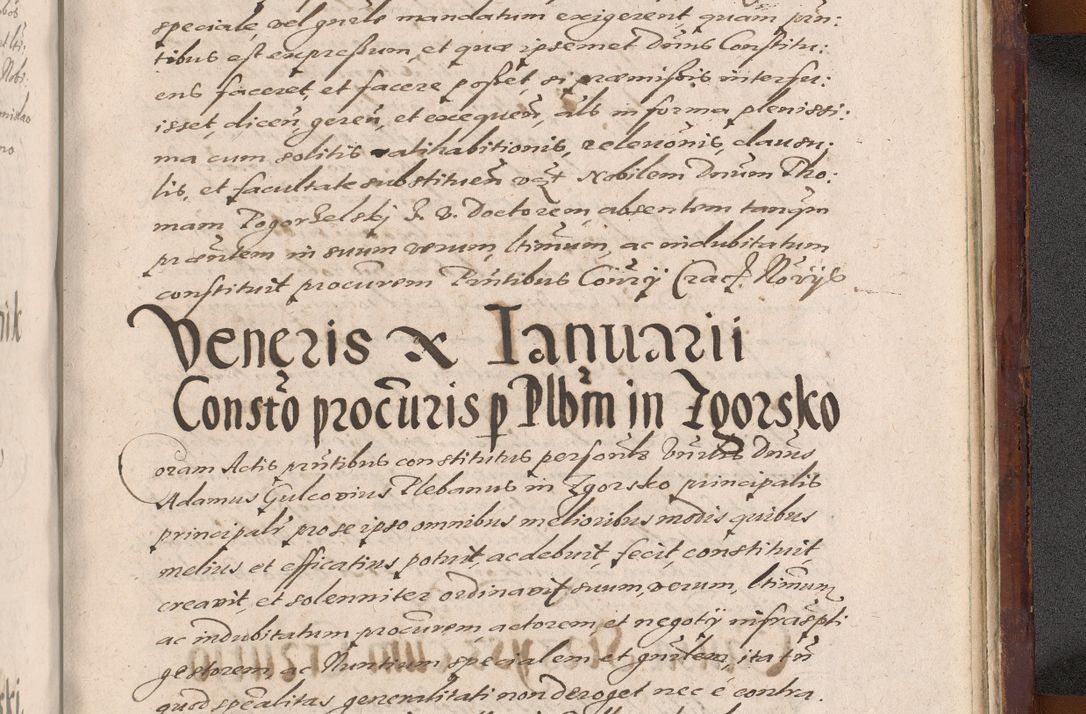 speciale, vel gn̄rle mandatum exigerent, quam prn̄:
tibus est expressum, et quæ ipsemet Dn̄us Constitu:
ens faceret, et facere posset, si præmissis interfu:
isset, dicen̄, geren̄, et exequen̄, als in forma plenissi:
ma cum solitis ratihabitionis, relev̄onis, clausu:
lis, et facultate substituen̄ Nobilem Dn̄um Tho:
mam Pogorzelskj I. V. Doctorem absentem tanq̄m
præn̄tem in suum verum, ltīmum, ac indubitatum
constituit procur̄em Prn̄tibus Nōrijs
Veneris X Ianuarii
Constō procūris p Plbm̄ in Zgorsko
Coram Actis prn̄tibus constitutus personlr Vn̄rlis Dn̄us
Adamus Gulcovius Plebanus in Zgorsko principalis
principalr pro se ipso omnibus melioribus modis quibus
melius et efficatius potuit, ac debuit, fecit, constituit,
creavit, et solenniter ordinavit suum, verum, ltīmum,
ac indubitatum procur̄em, actorem, et negotij infrascpti
gestorem, ac Nuntium specialem et gn̄rlem, ita tn̄
quod spēalitas generalitati non deroget nec e contra.